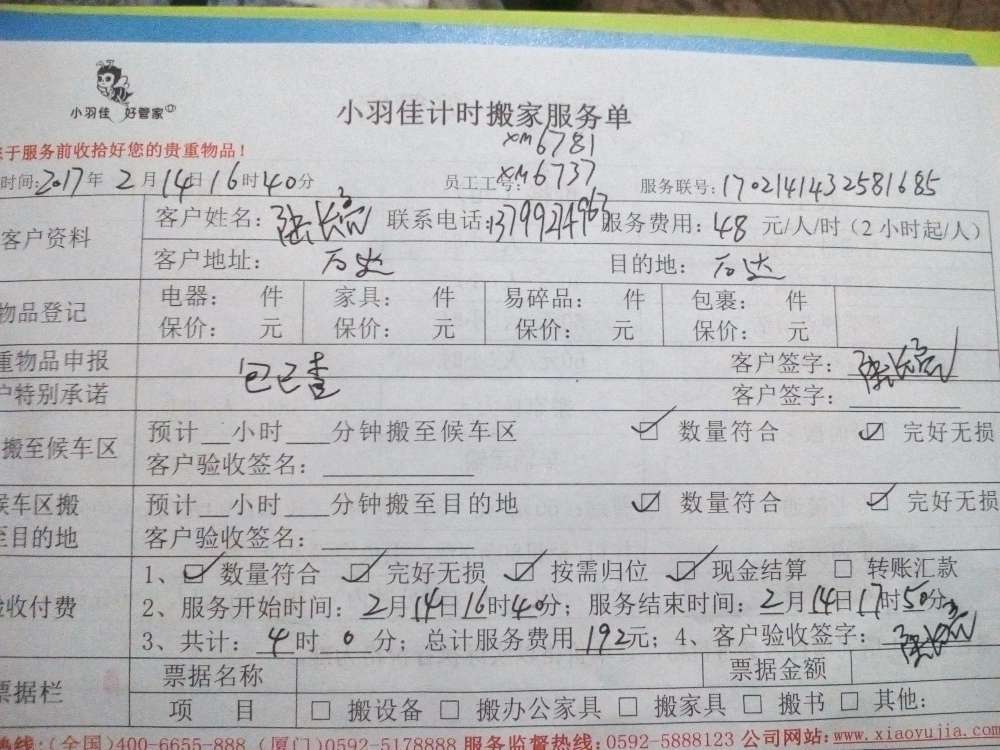 小羽佳 好管家
小羽佳计时搬家服务单
于服务前收拾好您的贵重物品！
XM6781
时间:2017年2月14日16时40分 员工工号: XM6737 服务联号:1702141432581685
客户资料 客户姓名: 联系电话: 服务费用:48元/人/时（2小时起/人）
客户地址： 目的地：
物品登记 电器： 件 家具： 件 易碎品： 件 包裹： 件
保价： 元 保价： 元 保价： 元 保价： 元
重物品申报 包已查 客户签字：
户特别承诺 客户签字：
搬至候车区 预计__小时___分钟搬至候车区 ☑ 数量符合 ☑ 完好无损
客户验收签名：
候车区搬至目的地 预计__小时___分钟搬至目的地 ☑ 数量符合 ☑ 完好无损
客户验收签名：
验收付费 1、☑ 数量符合 ☑ 完好无损 ☑ 按需归位 ☑ 现金结算 □ 转账汇款
2、服务开始时间：2月14日16时40分；服务结束时间：2月14日17时50分
3、共计：4时0分；总计服务费用192元；4、客户验收签字：
票据栏 票据名称 票据金额
项 目 □ 搬设备 □ 搬办公家具 □ 搬家具 □ 搬书 □ 其他:
热线:(全国)400-6655-888 (厦门)0592-5178888 服务监督热线:0592-5888123 公司网站:www.xiaoyujia.com